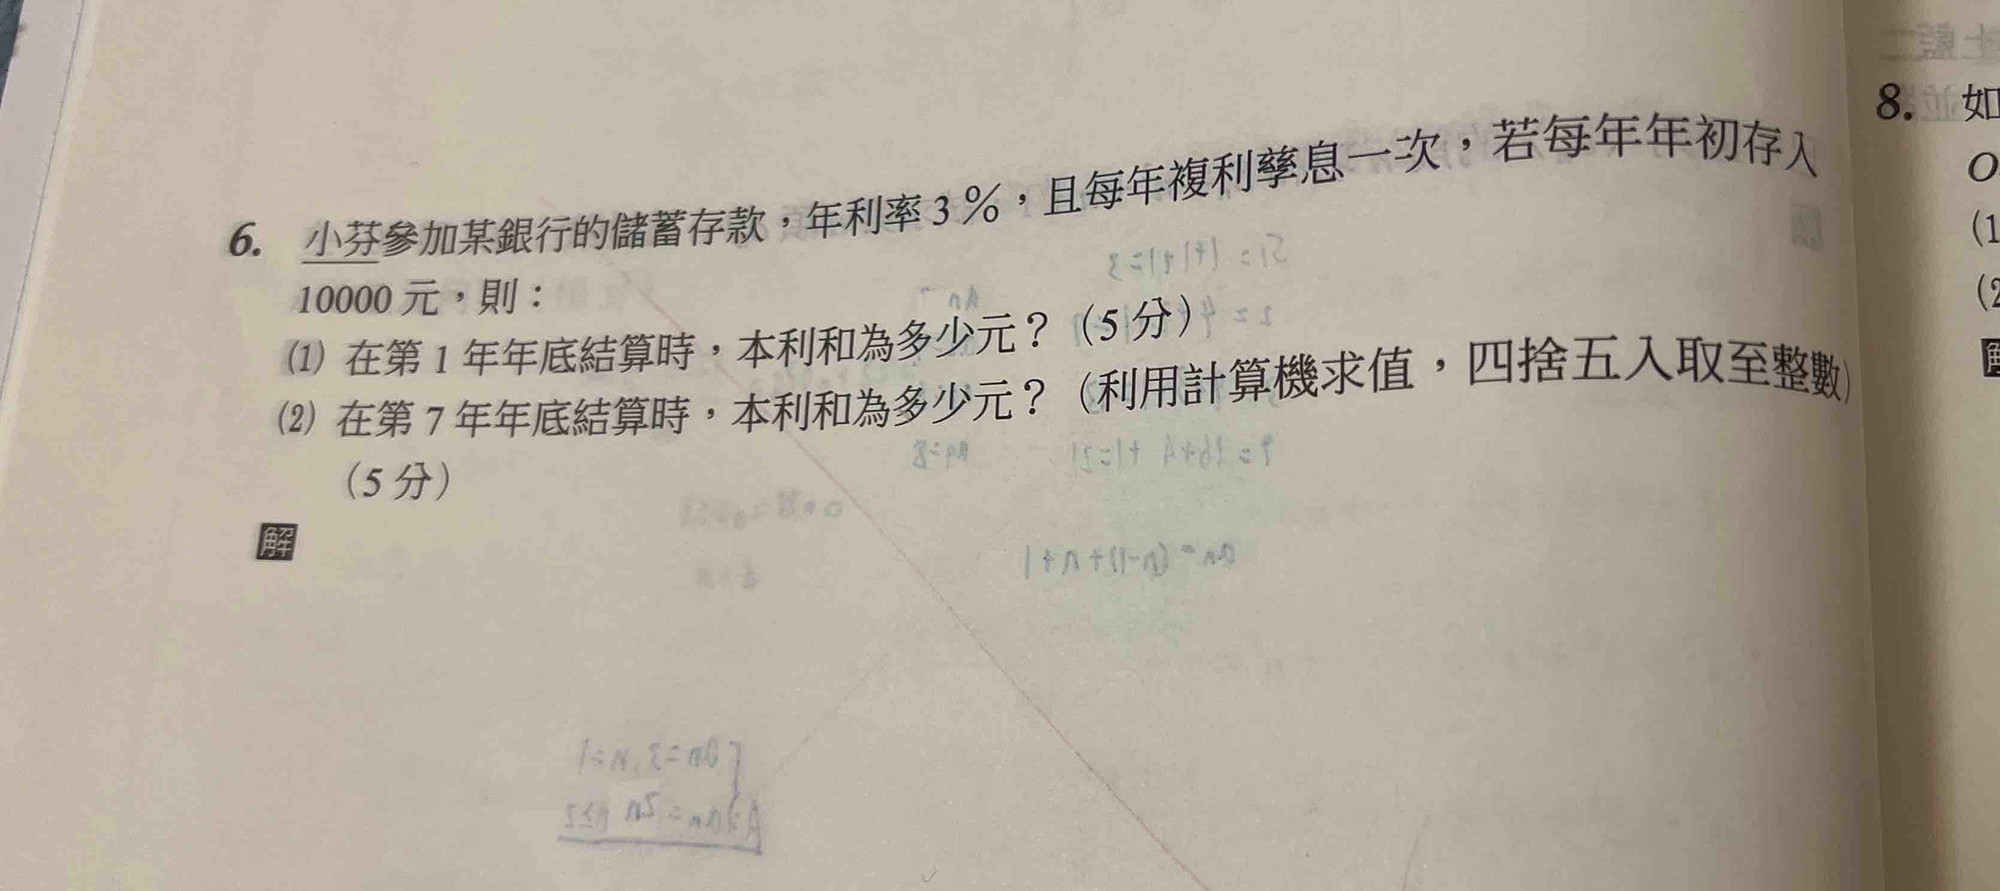 6. 小芬參加某銀行的儲蓄存款，年利率3％，且每年複利孳息一次，若每年年初存入
10000元，則：
(1) 在第1年年底結算時，本利和為多少元？（5分）
(2) 在第7年年底結算時，本利和為多少元？（利用計算機求值，四捨五入取至整數）
（5分）
解
8. 如
O
(1
(2